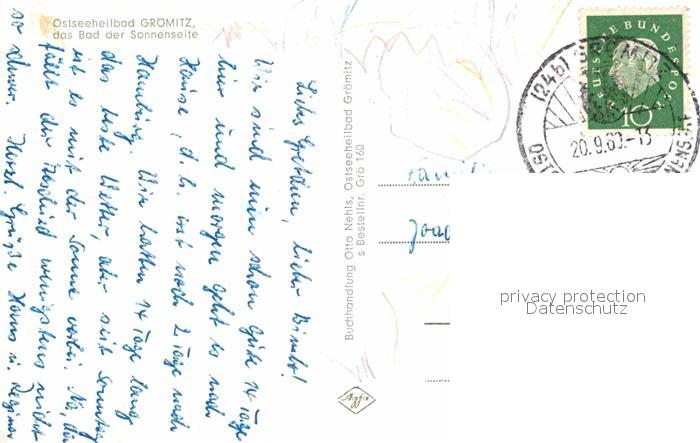 Ostseeheilbad GRÖMITZ,
das Bad der Sonnenseite
Liebes Gretchen, lieber
Wir sind nun schon gute 14 Tage
hier und morgen geht es nach
Hause, d. h. erst noch 2 Tage nach
Hamburg. Wir hatten 14 Tage lang
das beste Wetter, aber seit Sonntag
ist es mit der Sonne vorbei. Na, da
fällt der Abschied wenigstens nicht
so schwer. Herzl. Grüße Hans u.
Buchhandlung Otto Nehls, Ostseeheilbad Grömitz
s Bestellnr. Grö 160
Famili
Joac
DEUTSCHE BUNDESPOST
10
(24b) GRÖMITZ
20.9.60.-13
privacy protection
Datenschutz